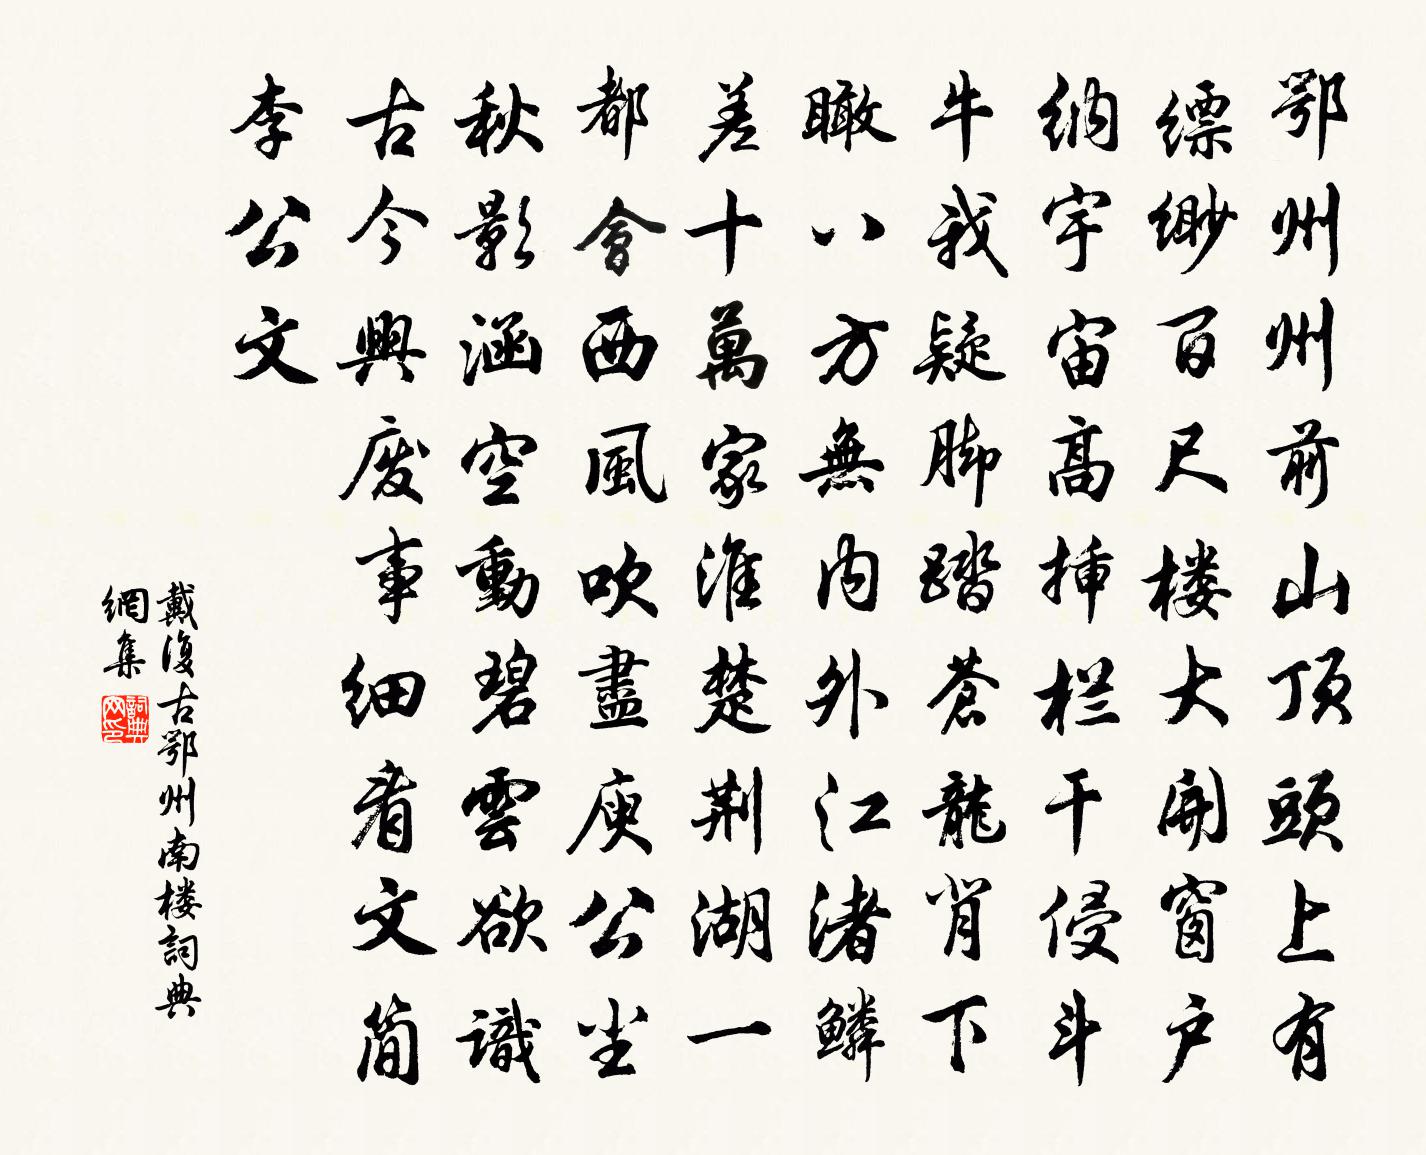 鄂州州前山頂頭上有
縹緲百尺楼大開窗戶
納宇宙高揷栏干侵斗
牛我疑脚踏蒼龍背下
瞰八方無內外江渚鱗
差十萬家淮楚荆湖一
都會西風吹盡庾公尘
秋影涵空動碧雲欲識
古今興廢事細看文简
李公文
戴復古鄂州南楼詞典
網集
詞典
网印